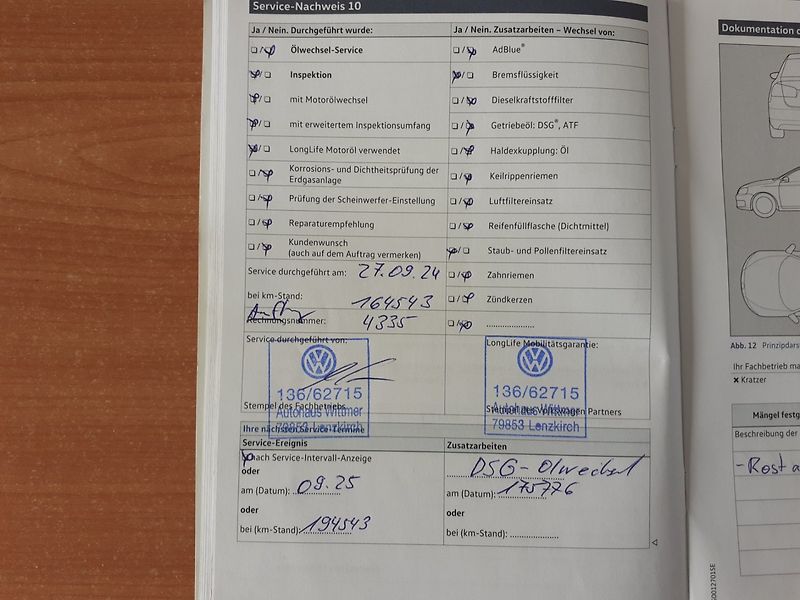 Service-Nachweis 10
Ja / Nein. Durchgeführt wurde:
Ja / Nein. Zusatzarbeiten – Wechsel von:
Ölwechsel-Service
AdBlue®
Inspektion
Bremsflüssigkeit
mit Motorölwechsel
Dieselkraftstofffilter
mit erweitertem Inspektionsumfang
Getriebeöl: DSG®, ATF
LongLife Motoröl verwendet
Haldexkupplung: Öl
Korrosions- und Dichtheitsprüfung der
Erdgasanlage
Keilrippenriemen
Prüfung der Scheinwerfer-Einstellung
Luftfiltereinsatz
Reparaturempfehlung
Reifenfüllflasche (Dichtmittel)
Kundenwunsch
(auch auf dem Auftrag vermerken)
Staub- und Pollenfiltereinsatz
Service durchgeführt am: 27.09.24
Zahnriemen
bei km-Stand: 164543
Zündkerzen
Rechnungsnummer: 4335
Service durchgeführt von:
LongLife Mobilitätsgarantie:
136/62715
Autohaus Wittmer
79853 Lenzkirch
Stempel des Fachbetriebs
136/62715
Autohaus Wittmer
79853 Lenzkirch
Partners
Ihre nächsten Service-Termine
Service-Ereignis
Zusatzarbeiten
nach Service-Intervall-Anzeige
DSG-Ölwechsel
oder
am (Datum): 09.25
am (Datum): 175776
oder
oder
bei (km-Stand): 194543
bei (km-Stand):
Dokumentation
Abb. 12 Prinzipdars
Ihr Fachbetrieb ma
× Kratzer
Mängel festg
Beschreibung der
- Rost a